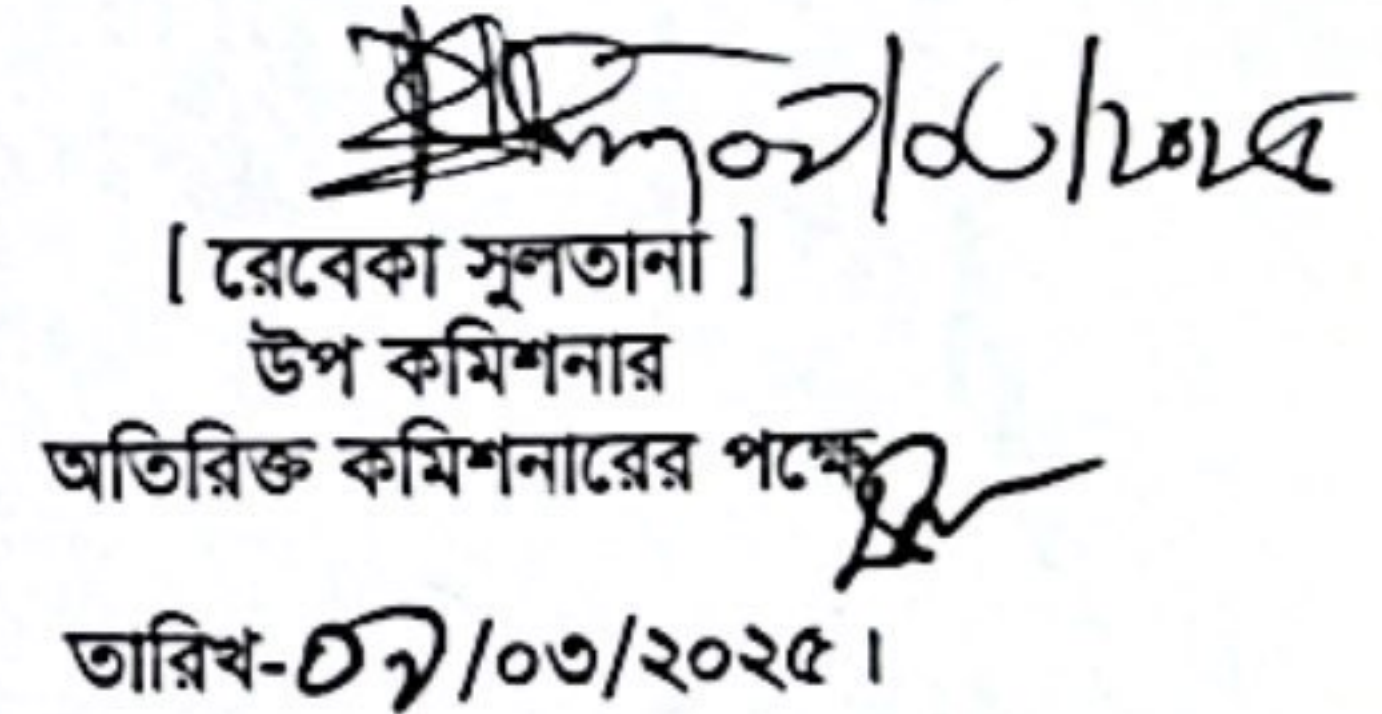 ০৯/০৩/২০২৫
[ রেবেকা সুলতানা ]
উপ কমিশনার
অতিরিক্ত কমিশনারের পক্ষে
তারিখ-০৯/০৩/২০২৫।